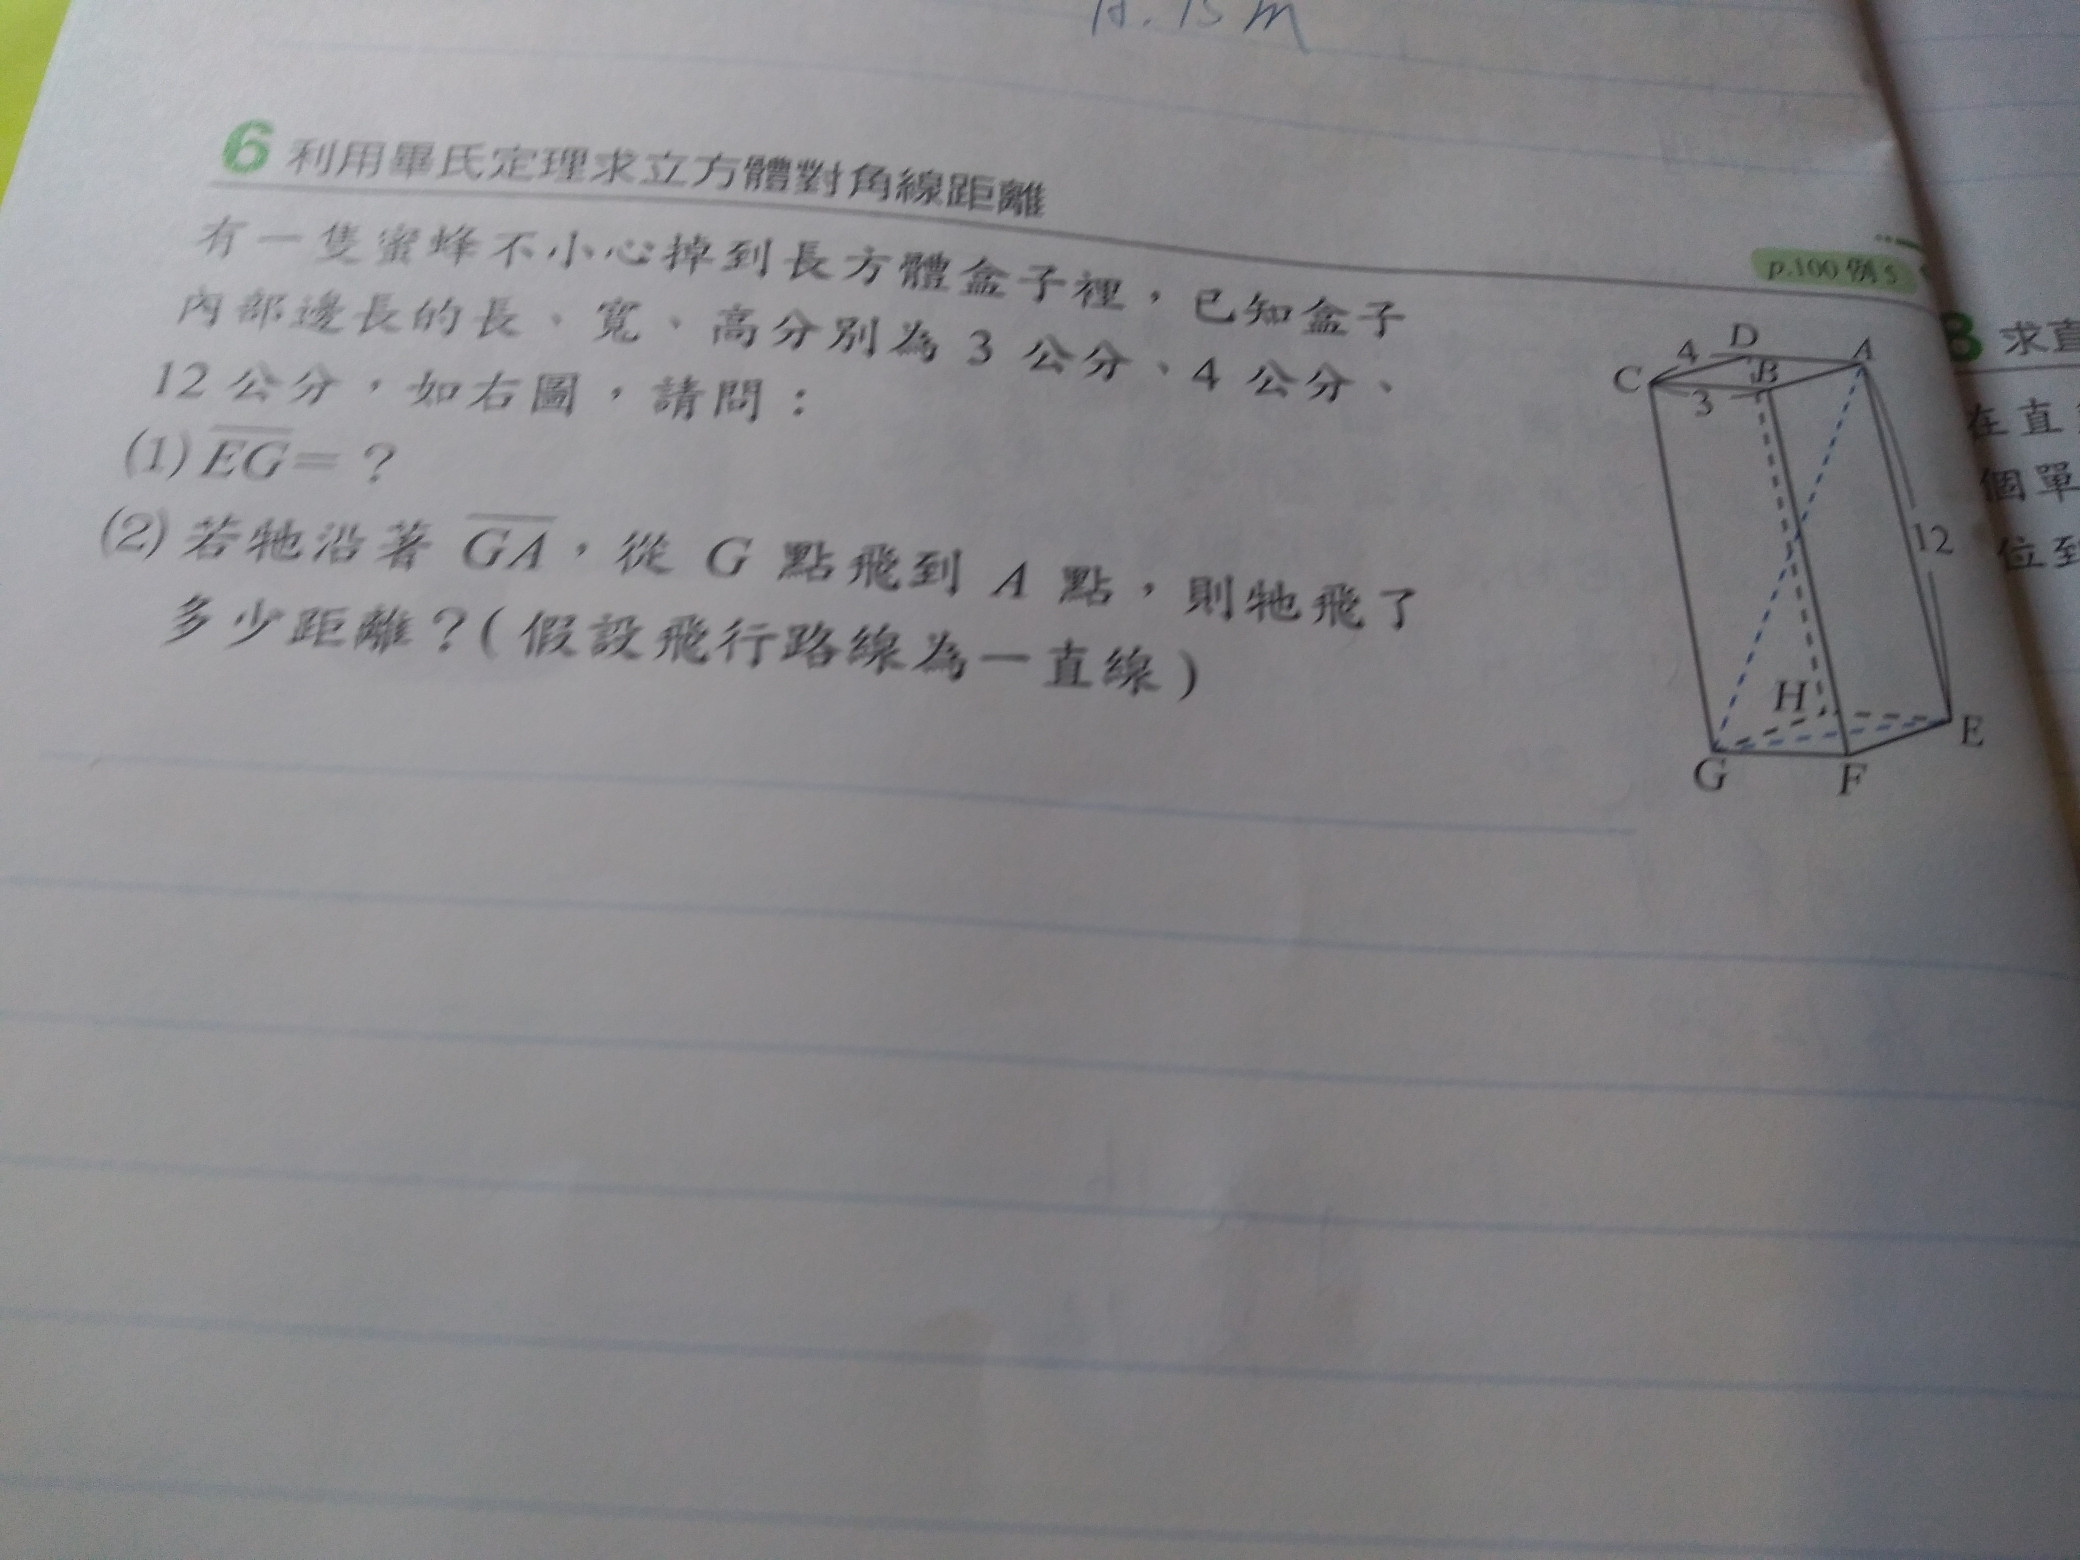 A. 15 m
6 利用畢氏定理求立方體對角線距離
p.100 例 5
有一隻蜜蜂不小心掉到長方體盒子裡，已知盒子
內部邊長的長、寬、高分別為 3 公分、4 公分、
12 公分，如右圖，請問：
(1) EG = ？
(2) 若牠沿著 GA，從 G 點飛到 A 點，則牠飛了
多少距離？( 假設飛行路線為一直線 )
D
A
4
C
B
3
12
H
E
G
F
8 求直
在直
個單
位到